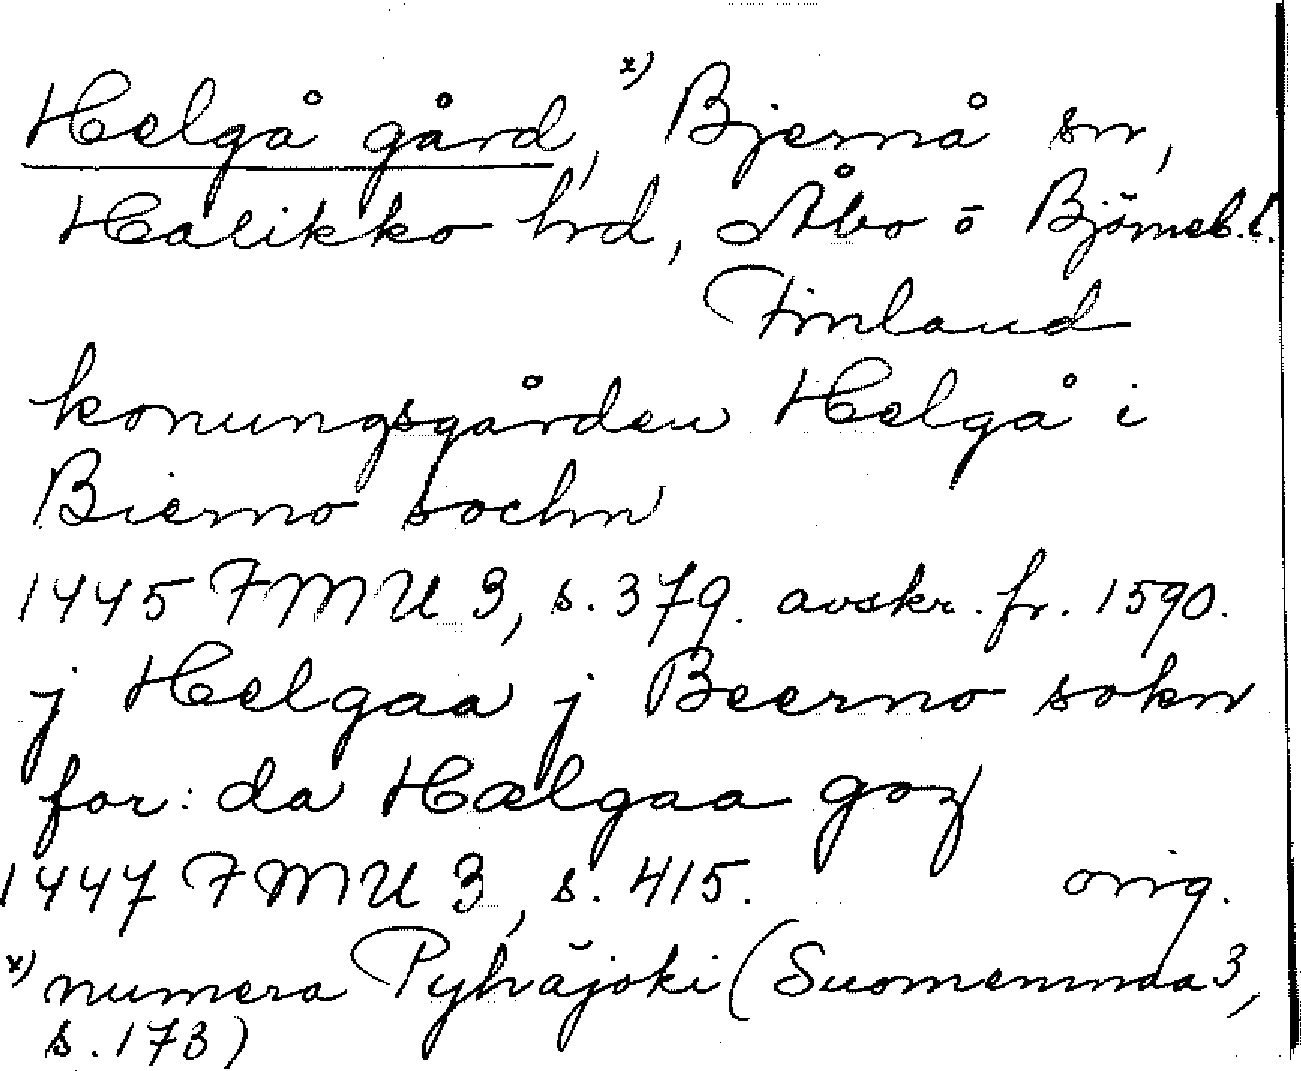 Helgå gård, x) Bjernå sn,
Halikko hrd, Åbo o Björneb. l.
Finland
konungsgården Helgå i
Bierno sochn
1445 FMU 3, s. 379. avskr. fr. 1590.
j Helgaa j Beerno sokn
for: da Hælgaa goz
1447 FMU 3, s. 415. orig.
x) numera Pyhäjoki (Suomenmaa 3,
s. 173)